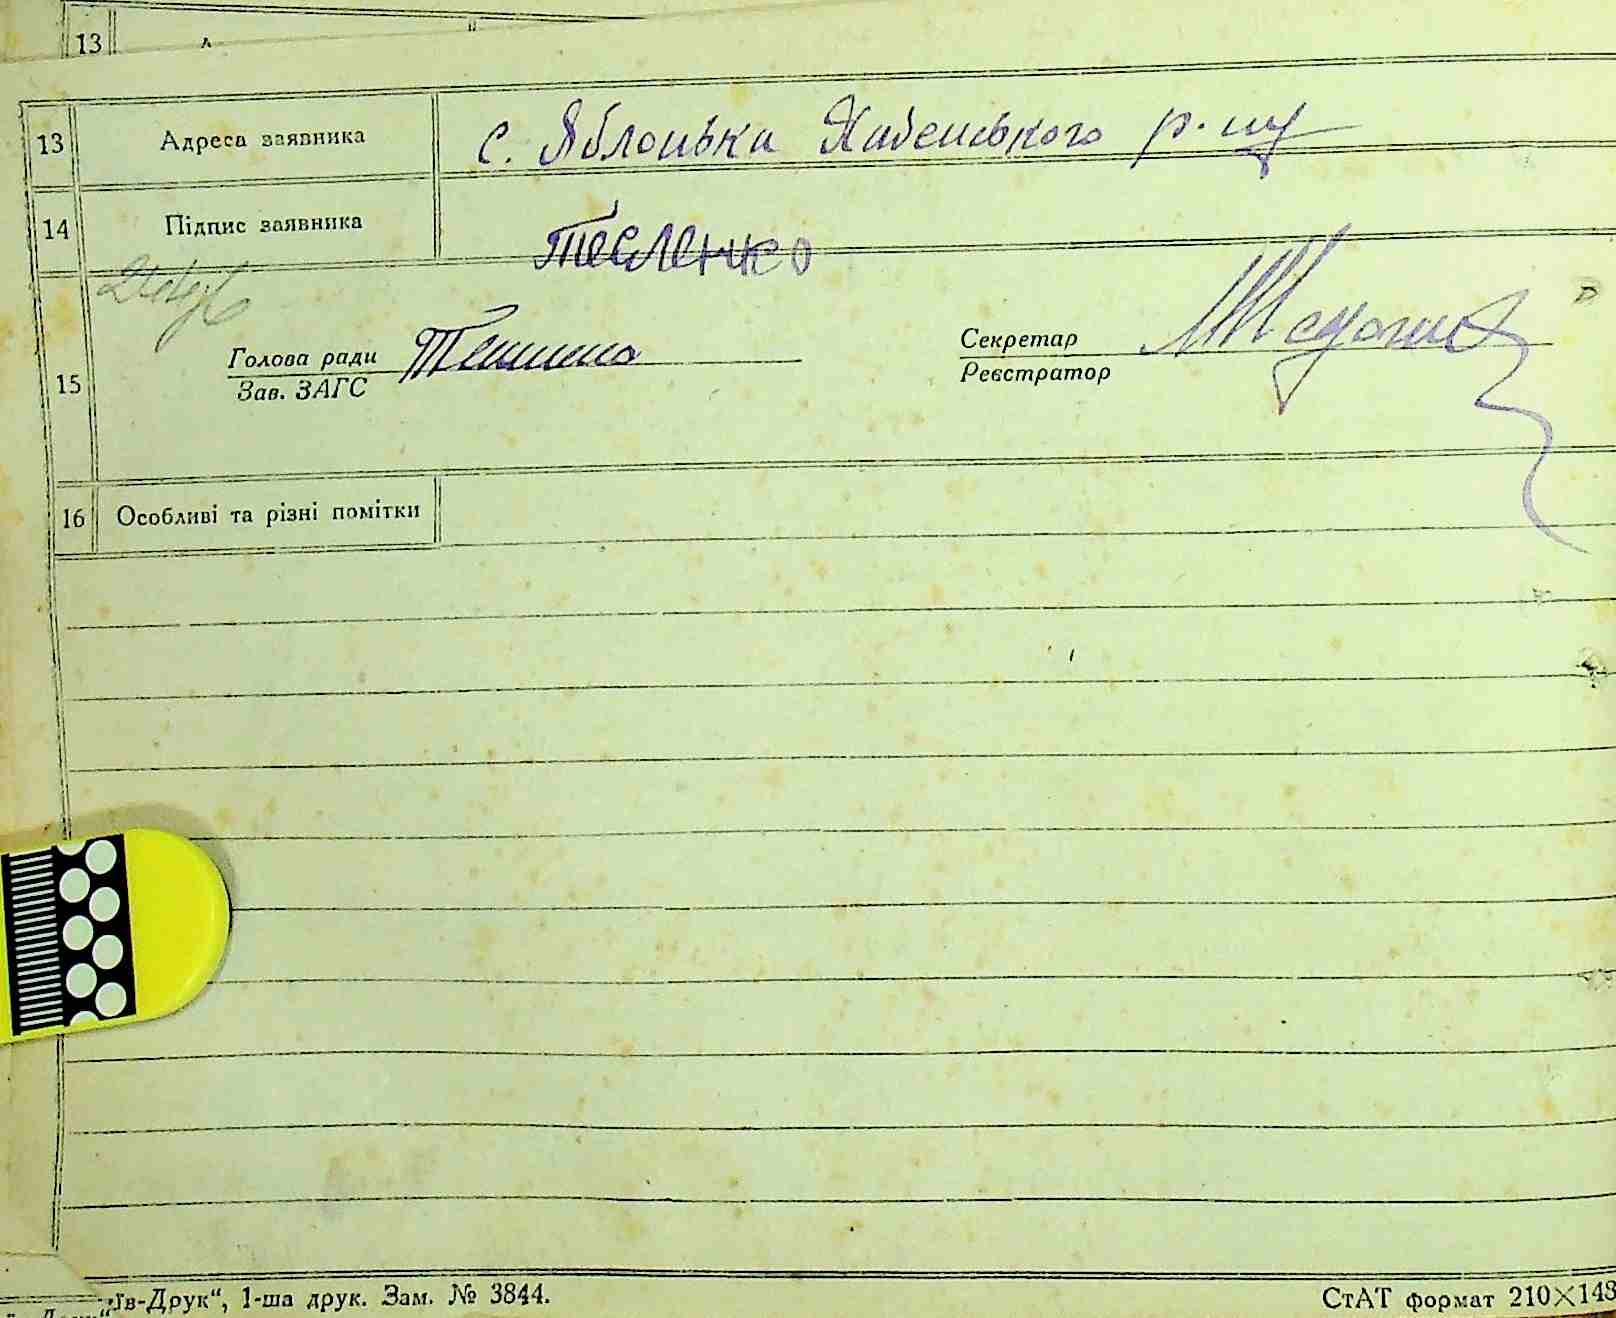 13
13 Адреса заявника с. Яблонька Хабенського р-ну
14 Підпис заявника Тесленко
15 Голова ради
Зав. ЗАГС
Секретар
Реєстратор
16 Особливі та різні помітки
їв-Друк“, 1-ша друк. Зам. № 3844.
СтАТ формат 210×148